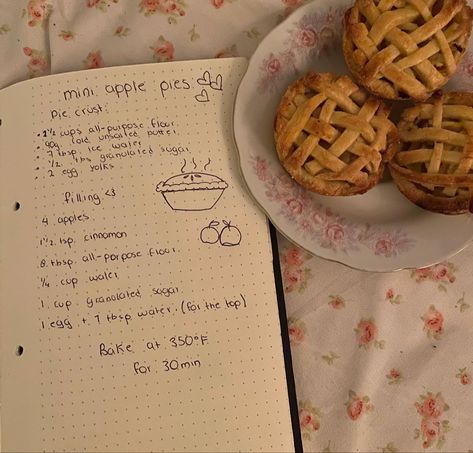 mini apple pies
pie crust
• 2 ½ cups all-purpose flour
• 90g cold unsalted butter
• 7 tbsp ice water
• ½ tbs granulated sugar
• 2 egg yolks
filling <3
4 apples
1 ½ tsp. cinnamon
8 tbsp. all-porpose flour
¼ cup water
1 cup granulated sugar
1 egg + 1 tbsp water. (for the top)
Bake at 350°F
for 30min